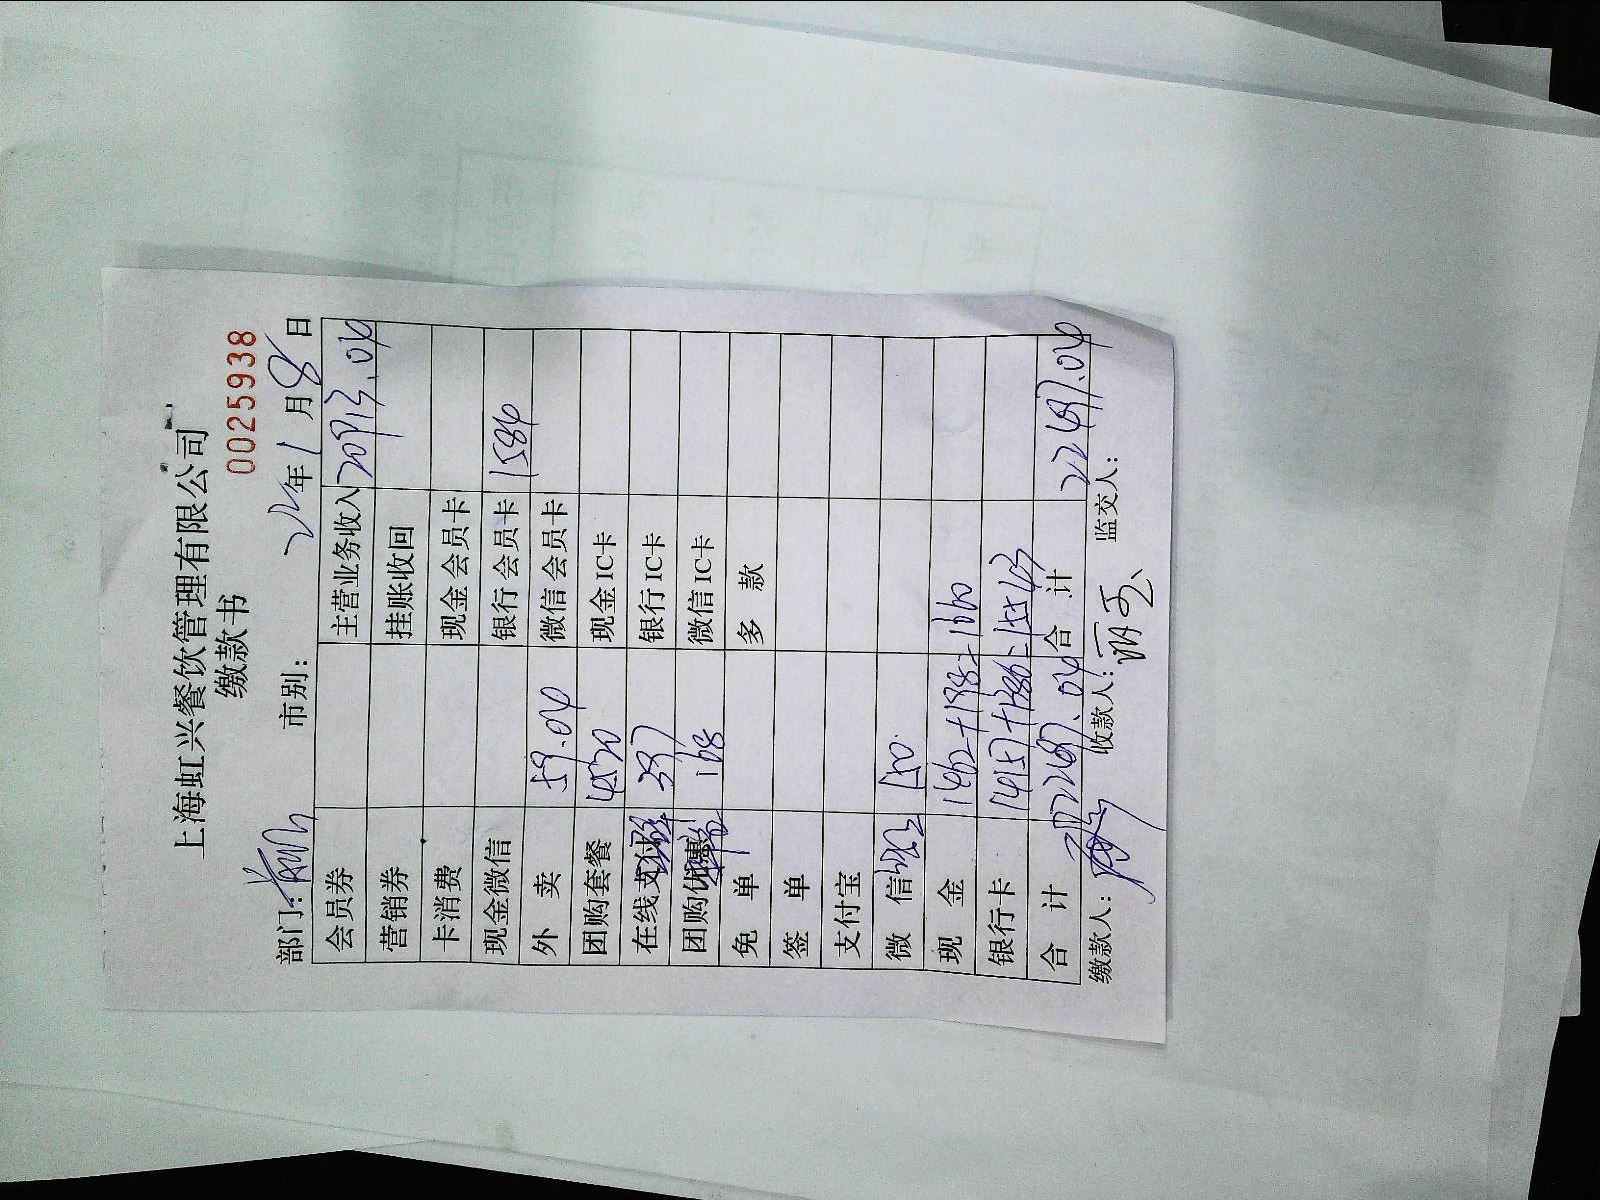 上海虹兴餐饮管理有限公司
缴款书
0025938
部门: 市别: 22年1月8日
会员券 主营业务收入 20913.04
营销券 挂账收回
卡消费 现金会员卡
现金微信 银行会员卡 1584
外 卖 59.04 微信会员卡
团购套餐 4520 现金IC卡
在线支付 397 银行IC卡
团购优惠 168 微信IC卡
免 单 多 款
签 单
支付宝
微 信 150
现 金 1462+198=1660
银行卡 14157+1386=15543
合 计 22497.04 合 计 22497.04
缴款人: 收款人: 监交人: